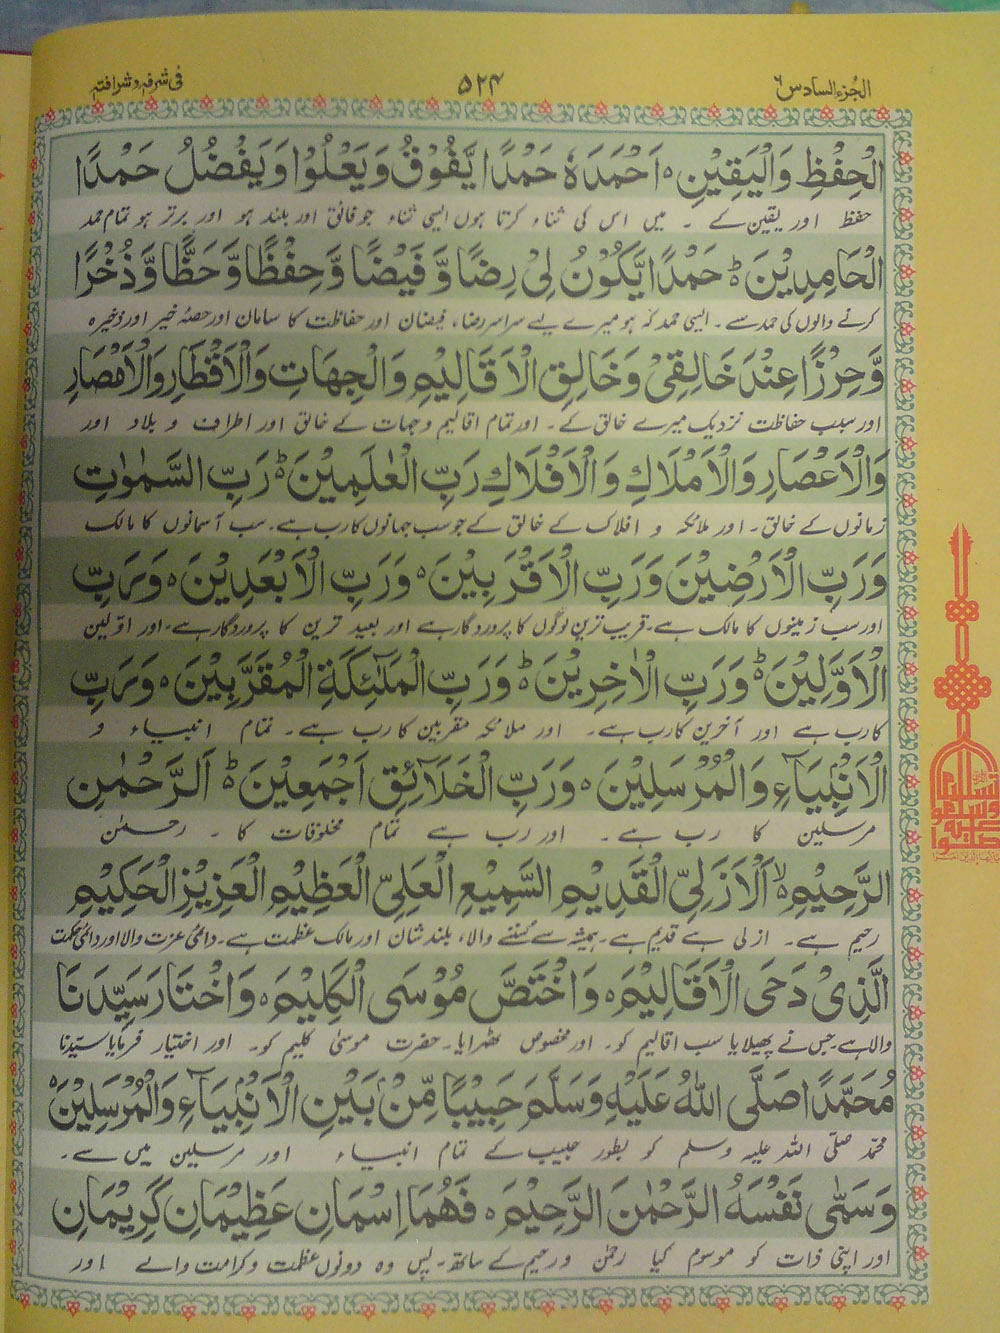 الجزء السادس ٦
٥٢٤
فی شرفہ وشرافتہ
الْحِفْظِ وَالْيَقِيْنِ ه اَحْمَدَهٗ حَمْدًا يَّفُوْقُ وَيَعْلُوْا وَيَفْضُلُ حَمْدًا
حفظ اور یقین کے ۔ میں اس کی ثناء کرتا ہوں ایسی ثناء جو فائق اور بلند ہو اور برتر ہو تمام حمد
الْحَامِدِيْنَ ط حَمْدًا يَّكُوْنُ لِيْ رِضًا وَّ فَيْضًا وَّ حِفْظًا وَّ حَظًّا وَّ ذُخْرًا
کرنے والوں کی حمد سے ۔ ایسی حمد کہ ہو میرے لیے سراسر رضا، فیضان اور حفاظت کا سامان اور حصۂ خیر اور ذخیرہ
وَّ حِرْزًا عِنْدَ خَالِقِيْ وَخَالِقِ الْاَقَالِيْمِ وَالْجِهَاتِ وَالْاَقْطَارِ وَالْاَمْصَارِ
اور سبب حفاظت نزدیک میرے خالق کے ۔ اور تمام اقالیم و جہات کے خالق اور اطراف و بلاد اور
وَالْاَعْصَارِ وَالْاَمْلَاكِ وَالْاَفْلَاكِ رَبِّ الْعٰلَمِيْنَ ط رَبِّ السَّمٰوٰتِ
زمانوں کے خالق ۔ اور ملائکہ و افلاک کے خالق کے جو سب جہانوں کا رب ہے ۔ سب آسمانوں کا مالک
وَرَبِّ الْاَرْضِيْنَ وَرَبِّ الْاَقْرَبِيْنَ ه وَرَبِّ الْاَبْعَدِيْنَ ه وَرَبِّ
اور سب زمینوں کا مالک ہے ۔ قریب ترین لوگوں کا پروردگار ہے اور بعید ترین کا پروردگار ہے ۔ اور اوّلین
الْاَوَّلِيْنَ ط وَرَبِّ الْاٰخِرِيْنَ ط وَرَبِّ الْمَلٰٓئِكَةِ الْمُقَرَّبِيْنَ ه وَرَبِّ
کا رب ہے اور آخرین کا رب ہے ۔ اور ملائکہ مقربین کا رب ہے ۔ تمام انبیاء و
الْاَنْبِيَآءِ وَالْمُرْسَلِيْنَ ه وَرَبِّ الْخَلَآئِقِ اَجْمَعِيْنَ ط اَلرَّحْمٰنِ
مرسلین کا رب ہے ۔ اور رب ہے تمام مخلوقات کا ۔ رحمٰن
الرَّحِيْمِ ه اَلْاَزَلِيِّ الْقَدِيْمِ السَّمِيْعِ الْعَلِيِّ الْعَظِيْمِ الْعَزِيْزِ الْحَكِيْمِ
رحیم ہے ۔ ازلی ہے قدیم ہے ۔ ہمیشہ سے سننے والا، بلند شان اور مالک عظمت ہے ۔ دائمی عزت والا اور دائمی حکمت
الَّذِيْ دَحَى الْاَقَالِيْمَ ه وَاخْتَصَّ مُوْسَى الْكَلِيْمَ ه وَاخْتَارَ سَيِّدَنَا
والا ہے ۔ جس نے پھیلا دیا سب اقالیم کو ۔ اور مخصوص ٹھہرایا ۔ حضرت موسیٰ کلیم کو ۔ اور اختیار فرمایا سیّدنا
مُحَمَّدًا صَلَّى اللهُ عَلَيْهِ وَسَلَّمَ حَبِيْبًا مِّنْۢ بَيْنِ الْاَنْبِيَآءِ وَالْمُرْسَلِيْنَ ه
محمد صلّی اللہ علیہ وسلم کو بطور حبیب کے تمام انبیاء اور مرسلین میں سے ۔
وَ سَمّٰى نَفْسَهُ الرَّحْمٰنَ الرَّحِيْمَ ه فَهُمَا اِسْمَانِ عَظِيْمَانِ كَرِيْمَانِ
اور اپنی ذات کو موسوم کیا رحمٰن و رحیم کے ساتھ ۔ پس وہ دونوں عظمت و کرامت والے اور